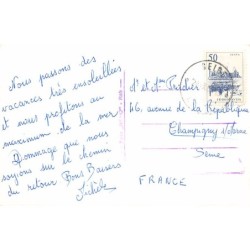 Nous passons des
vacances très ensoleillées
et nous profitons au
maximum de la mer
Dommage que nous
soyons sur le chemin
du retour Bons Baisers
50
M et Mme
46, avenue de la République
Champigny s/Marne
Seine
FRANCE